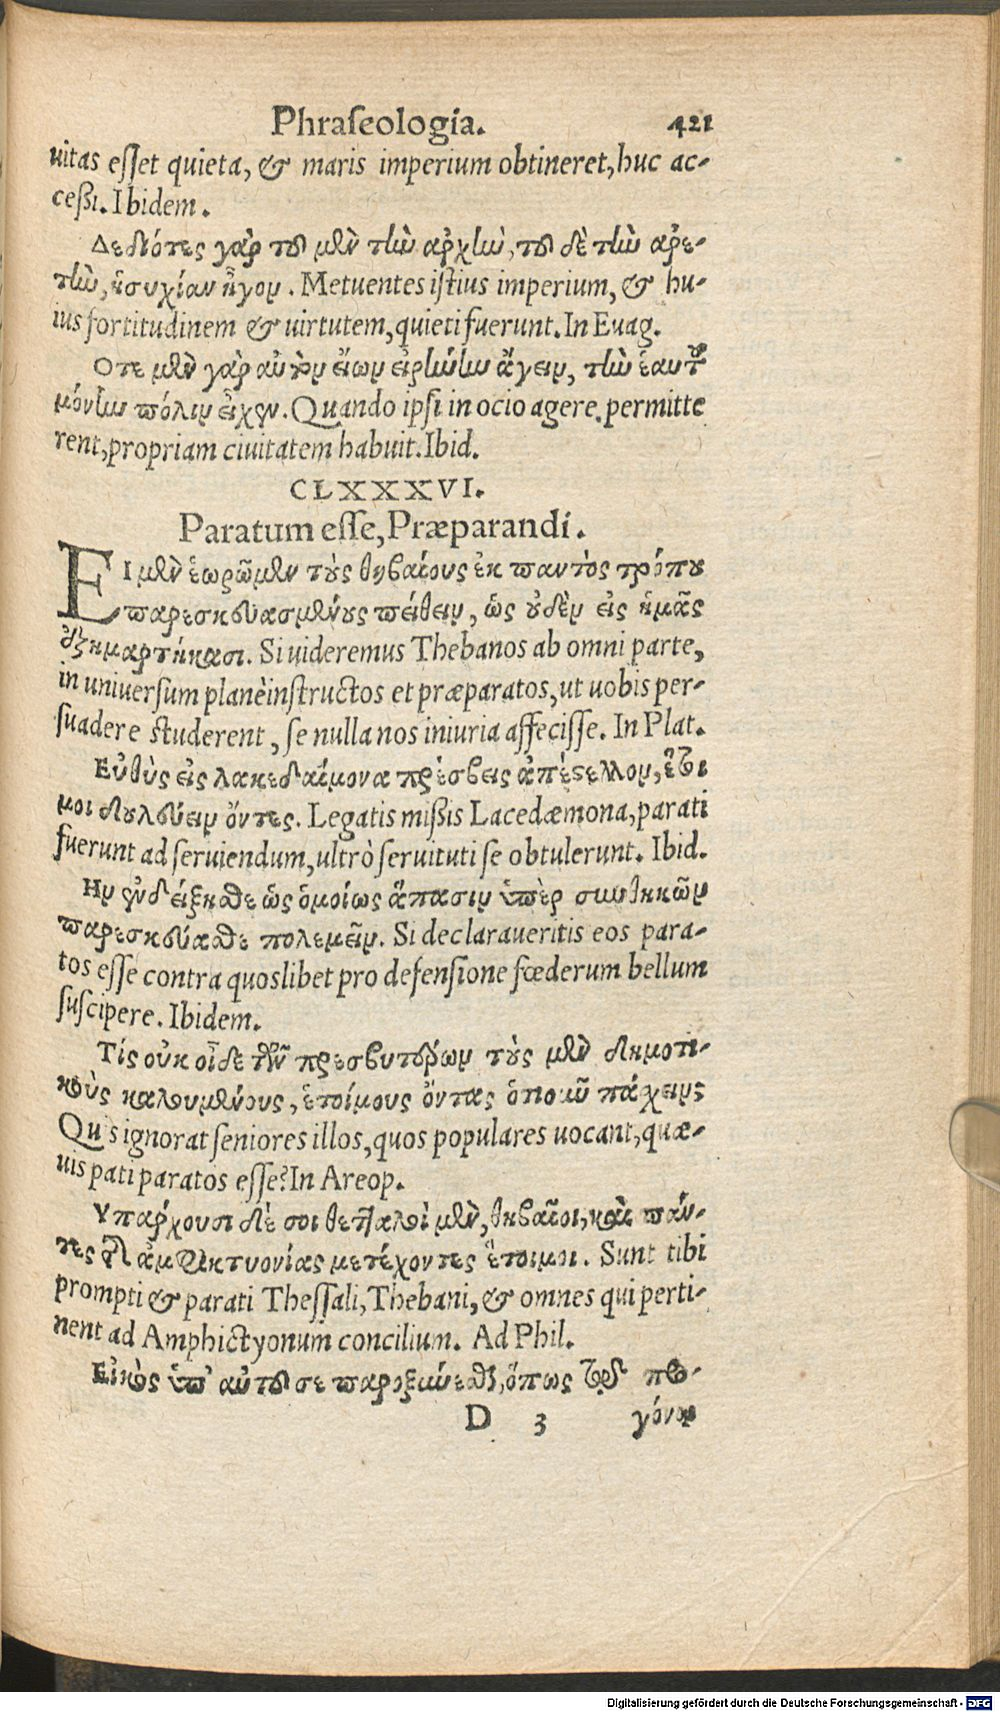 Phraſeologia. 421
uitas eſſet quieta, & maris imperium obtineret, huc ac-
ceßi. Ibidem.
Δεδιότες γὰρ τοῦ μὲν τὴν ἀρχὴν, τοῦ δὲ τὴν ἀρε-
τὴν, ἡσυχίαν ἦγον. Metuentes iſtius imperium, & hu-
ius fortitudinem & uirtutem, quieti fuerunt. In Euag.
Οτε μὲν γὰρ αὐτὸν εἴων εἰρήνην ἄγειν, τὴν ἑαυτοῦ
μόνην πόλιν εἶχεν. Quando ipſi in ocio agere permitte
rent, propriam ciuitatem habuit. Ibid.
CLXXXVI.
Paratum eſſe, Præparandi.
ΕΙ μὲν ἑωρῶμεν τοὺς θηβαίους ἐκ παντὸς τρόπου
παρεσκευασμένους πείθειν, ὡς οὐδὲν εἰς ἡμᾶς
ἐξημαρτήκασι. Si uideremus Thebanos ab omni parte,
in uniuerſum planè inſtructos et præparatos, ut uobis per-
ſuadere ſtuderent, ſe nulla nos iniuria affeciſſe. In Plat.
Εὐθὺς εἰς λακεδαίμονα πρέσβεις ἀπέστελλον, ἕτοι
μοι δουλεύειν ὄντες. Legatis mißis Lacedæmona, parati
fuerunt ad ſeruiendum, ultrò ſeruituti ſe obtulerunt. Ibid.
Ην ἐνδείξησθε ὡς ὁμοίως ἅπασιν ὑπὲρ συνθηκῶν
παρεσκεύασθε πολεμεῖν. Si declaraueritis eos para-
tos eſſe contra quoslibet pro defenſione fœderum bellum
ſuſcipere. Ibidem.
Τίς οὐκ οἶδε τῶν πρεσβυτέρων τοὺς μὲν δημοτι-
κοὺς καλουμένους, ἑτοίμους ὄντας ὁποιοῦν πάσχειν;
Quis ignorat ſeniores illos, quos populares uocant, quæ-
uis pati paratos eſſe? In Areop.
Υπάρχουσι δέ σοι θετταλοὶ μὲν, θηβαῖοι, καὶ πάν-
τες οἱ ἀμφικτυονίας μετέχοντες ἕτοιμοι. Sunt tibi
prompti & parati Theſſali, Thebani, & omnes qui perti-
nent ad Amphictyonum concilium. Ad Phil.
Εἰκὸς ὑπ' αὐτοῦ σε παροξύνεσθαι, ὅπως τῶν προ-
D 3 γόνων
Digitalisierung gefördert durch die Deutsche Forschungsgemeinschaft - DFG